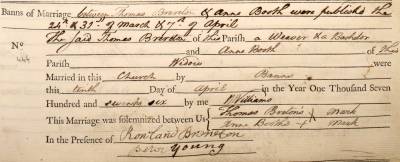 Banns of Marriage between Thomas Brereton & Anne Booth were published the
24th & 31st of March & 7th of April
The said Thomas Brereton of this Parish a Weaver & a Batchelor
No 444 and Anne Booth of this
Parish Widow were
Married in this Church by Banns
this tenth Day of April in the Year One Thousand Seven
Hundred and seventy six by me Williams
This Marriage was solemnized between Us Thomas Breton's X Mark
Anne Booth's X Mark
In the Presence of Rowland Brereton
Peter Young